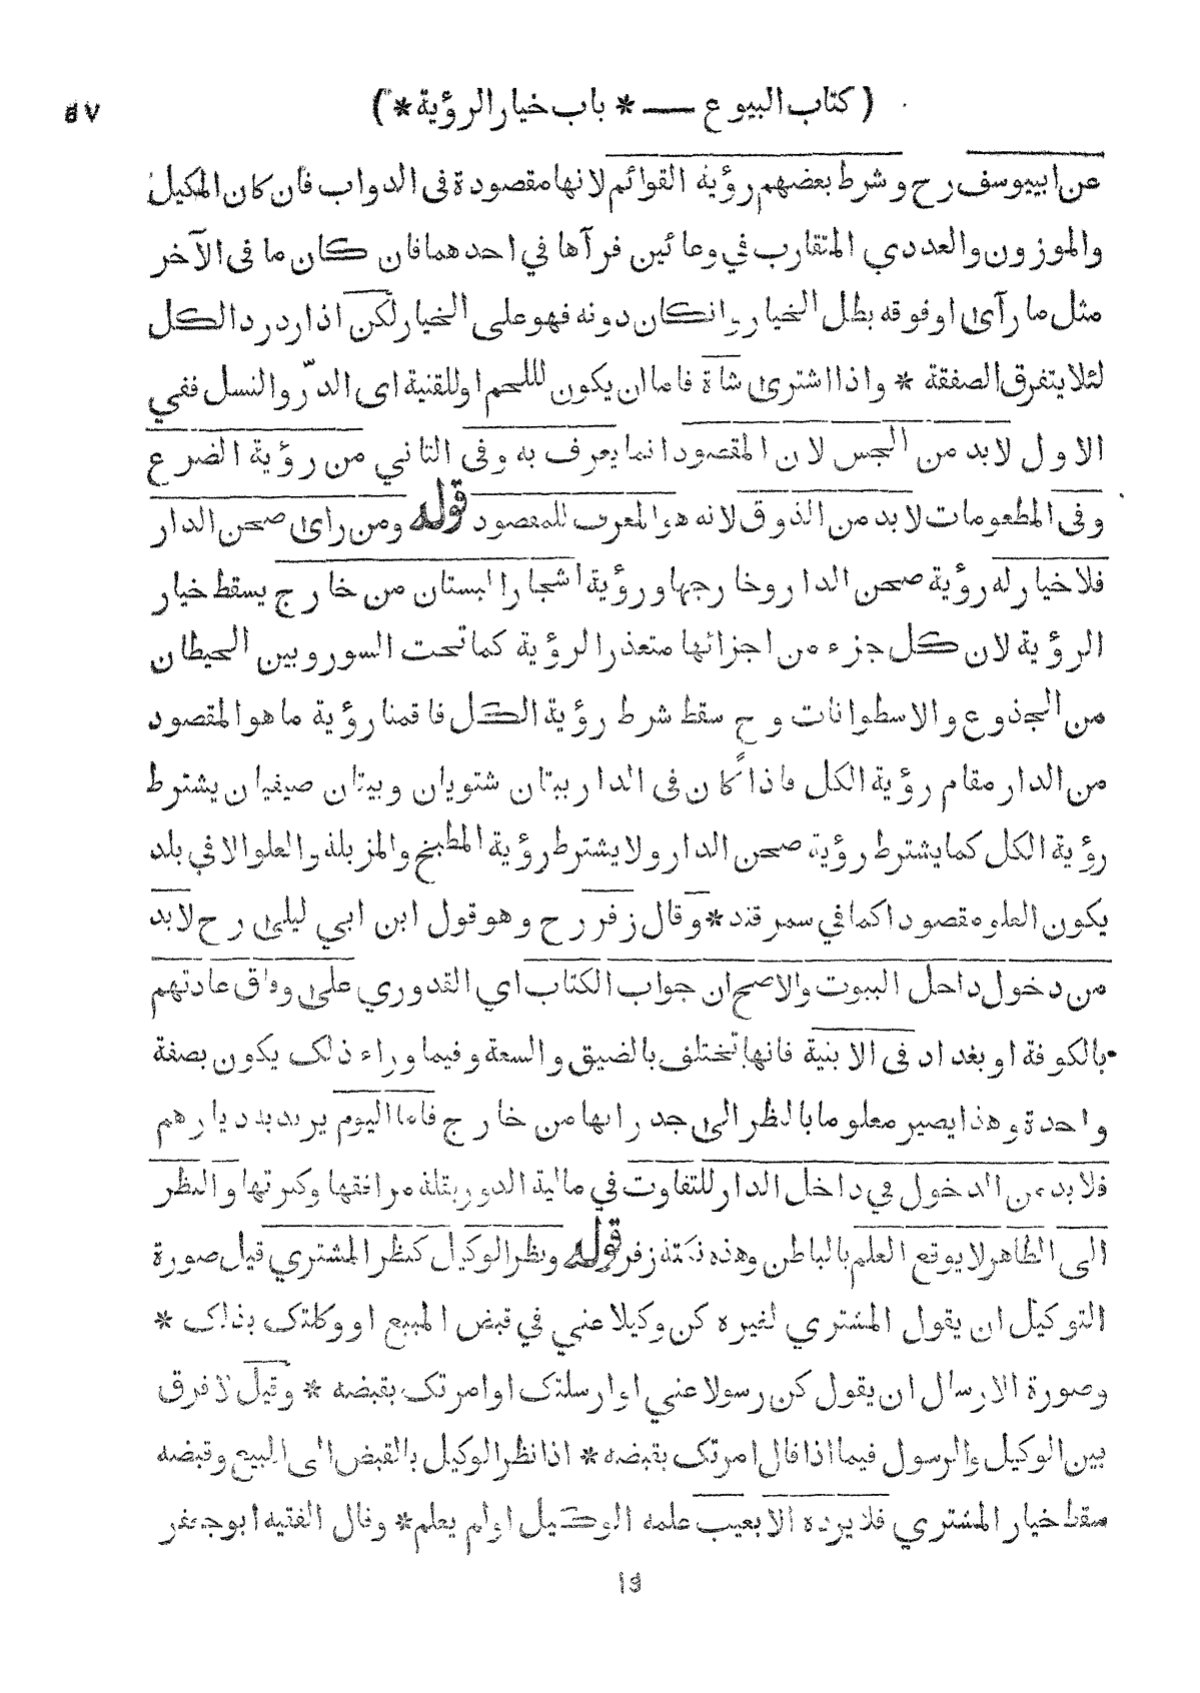 ( كتاب البيوع — * باب خيار الرؤية * )
عن ابييوسف رح وشرط بعضهم رؤية القوائم لانها مقصودة فى الدواب فان كان المكيل
والموزون والعددي المتقارب في وعائين فرآها في احدهما فان كان ما فى الآخر
مثل ما رآى او فوقه بطل الخيار وانكان دونه فهو على الخيار لكن اذا رد رد الكل
لئلا يتفرق الصفقة * واذا اشترى شاة فاما ان يكون لللحم او للقنية اى الدرّ والنسل ففي
الاول لابد من الجس لان المقصود انما يعرف به وفى الثاني من رؤية الضرع
وفى المطعومات لابد من الذوق لانه هو المعرف للمقصود قوله ومن راى صحن الدار
فلا خيار له رؤية صحن الدار وخارجها ورؤية اشجار البستان من خارج يسقط خيار
الرؤية لان كل جزء من اجزائها متعذر الرؤية كما تحت السور وبين الحيطان
من الجذوع والاسطوانات وح سقط شرط رؤية الكل فاقمنا رؤية ما هو المقصود
من الدار مقام رؤية الكل فاذا كان فى الدار بيتان شتويان وبيتان صيفيان يشترط
رؤية الكل كما يشترط رؤية صحن الدار ولا يشترط رؤية المطبخ والمزبلة والعلو الا في بلد
يكون العلو مقصودا كما في سمرقند * وقال زفر رح وهو قول ابن ابي ليلى رح لابد
من دخول داخل البيوت والاصح ان جواب الكتاب اي القدوري على وفاق عادتهم
بالكوفة او بغداد فى الابنية فانها تختلف بالضيق والسعة وفيما وراء ذلك يكون بصفة
واحدة وهذا يصير معلوما بالنظر الى جدرانها من خارج فاما اليوم يريد به ديارهم
فلابد من الدخول في داخل الدار للتفاوت في مالية الدور بقلة مرافقها وكثرتها والنظر
الى الظاهر لا يوقع العلم بالباطن وهذه نكتة زفر قوله ونظر الوكيل كنظر المشتري قيل صورة
التوكيل ان يقول المشتري لغيره كن وكيلا عني في قبض المبيع او وكلتك بذلك *
وصورة الارسال ان يقول كن رسولا عني او ارسلتك او امرتك بقبضه * وقيل لا فرق
بين الوكيل والرسول فيما اذا قال امرتك بقبضه * اذا نظر الوكيل بالقبض الى المبيع وقبضه
سقط خيار المشتري فلا يرده الا بعيب علمه الوكيل او لم يعلم * وقال الفقيه ابو جعفر